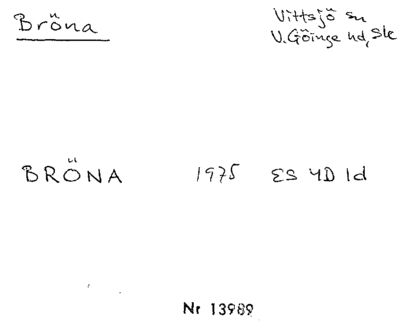 Bröna
Vittsjö sn
V. Göinge hd, Sk
BRÖNA 1975 ES 4D 1d
Nr 13989